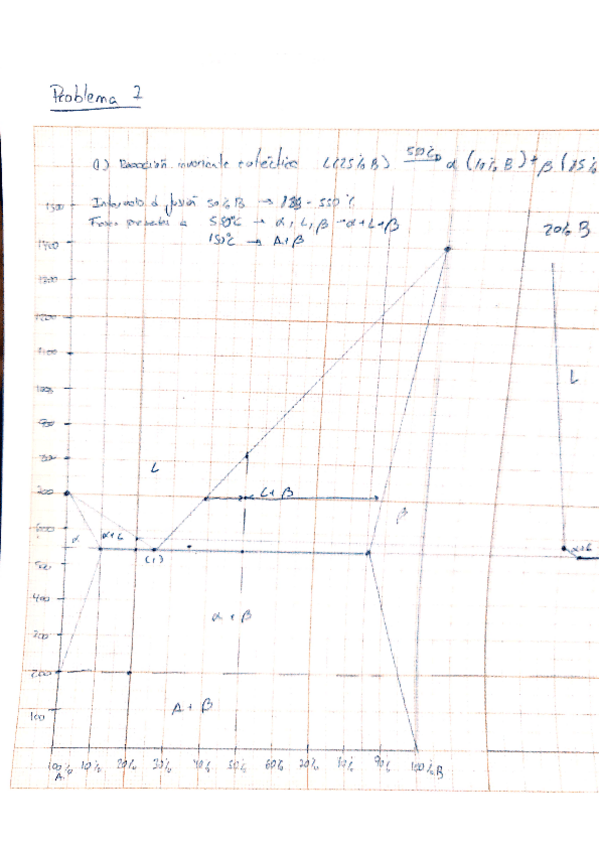 Problema 2
(1) Reacción invariante eutéctica L(25% B) 550°C α (10% B) + β (85%
Intervalo d fusión 50% B → - 550°C
Fases presentes a 550°C → α, L, β → α+L+β
150°C → A+β
20% B
1500
1400
1300
1200
1100
1000
900
800
700
600
500
400
300
200
100
L
L
L+β
α
α+L
β
(1)
α+L
α+β
A+β
100% A
10%
20%
30%
40%
50%
60%
70%
80%
90%
100% B